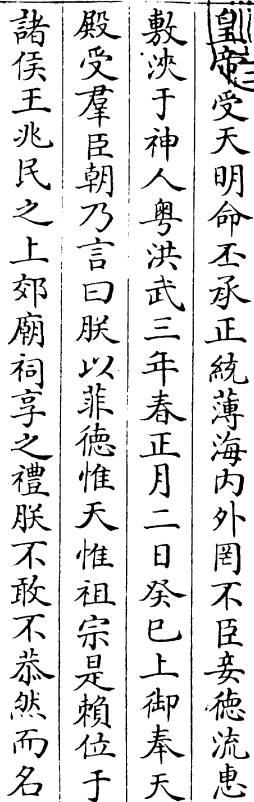 皇帝受天明命丕承正統薄海内外罔不臣妾徳流恵
敷浹于神人粤洪武三年春正月二日癸巳上御奉天
殿受羣臣朝乃言曰朕以菲徳惟天惟祖宗是賴位于
諸侯王兆民之上郊廟祠享之禮朕不敢不恭然而名